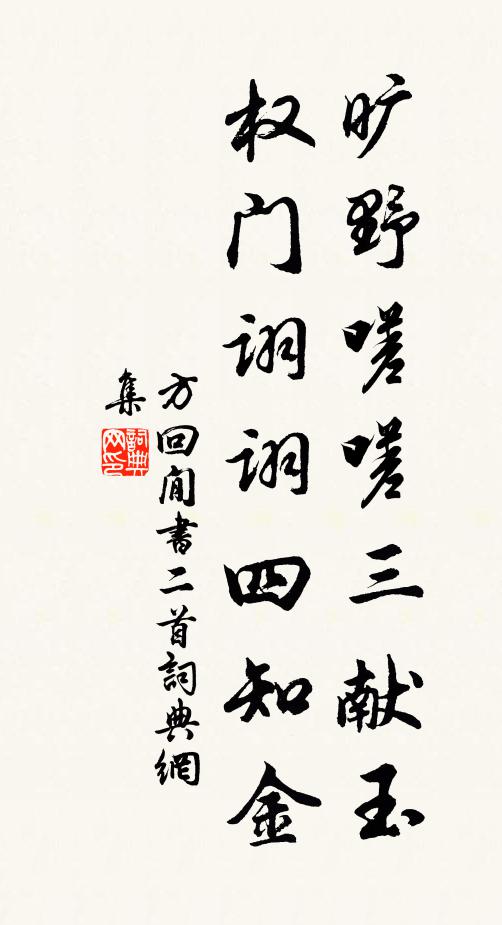 旷野嗟嗟三献玉
权门诩诩四知金
方回閒書二首詞典網
集
詞典
网印